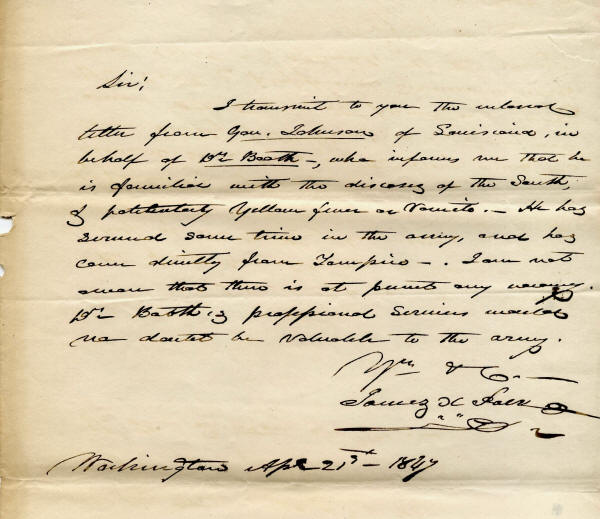 Sir;
I transmit to you the enclosed
letter from Gov. Johnson of Louisiana, in
behalf of Dr Booth -, who informs me that he
is familiar with the diseases of the South,
& particularly Yellow fever or Vomito. - He has
served some time in the army, and has
come directly from Tampico - . I am not
aware that there is at present any vacancy.
Dr Booth's professional services would
no doubt be valuable to the army.
Yrs &c. -
James K Polk
Washington Apl 21st - 1847